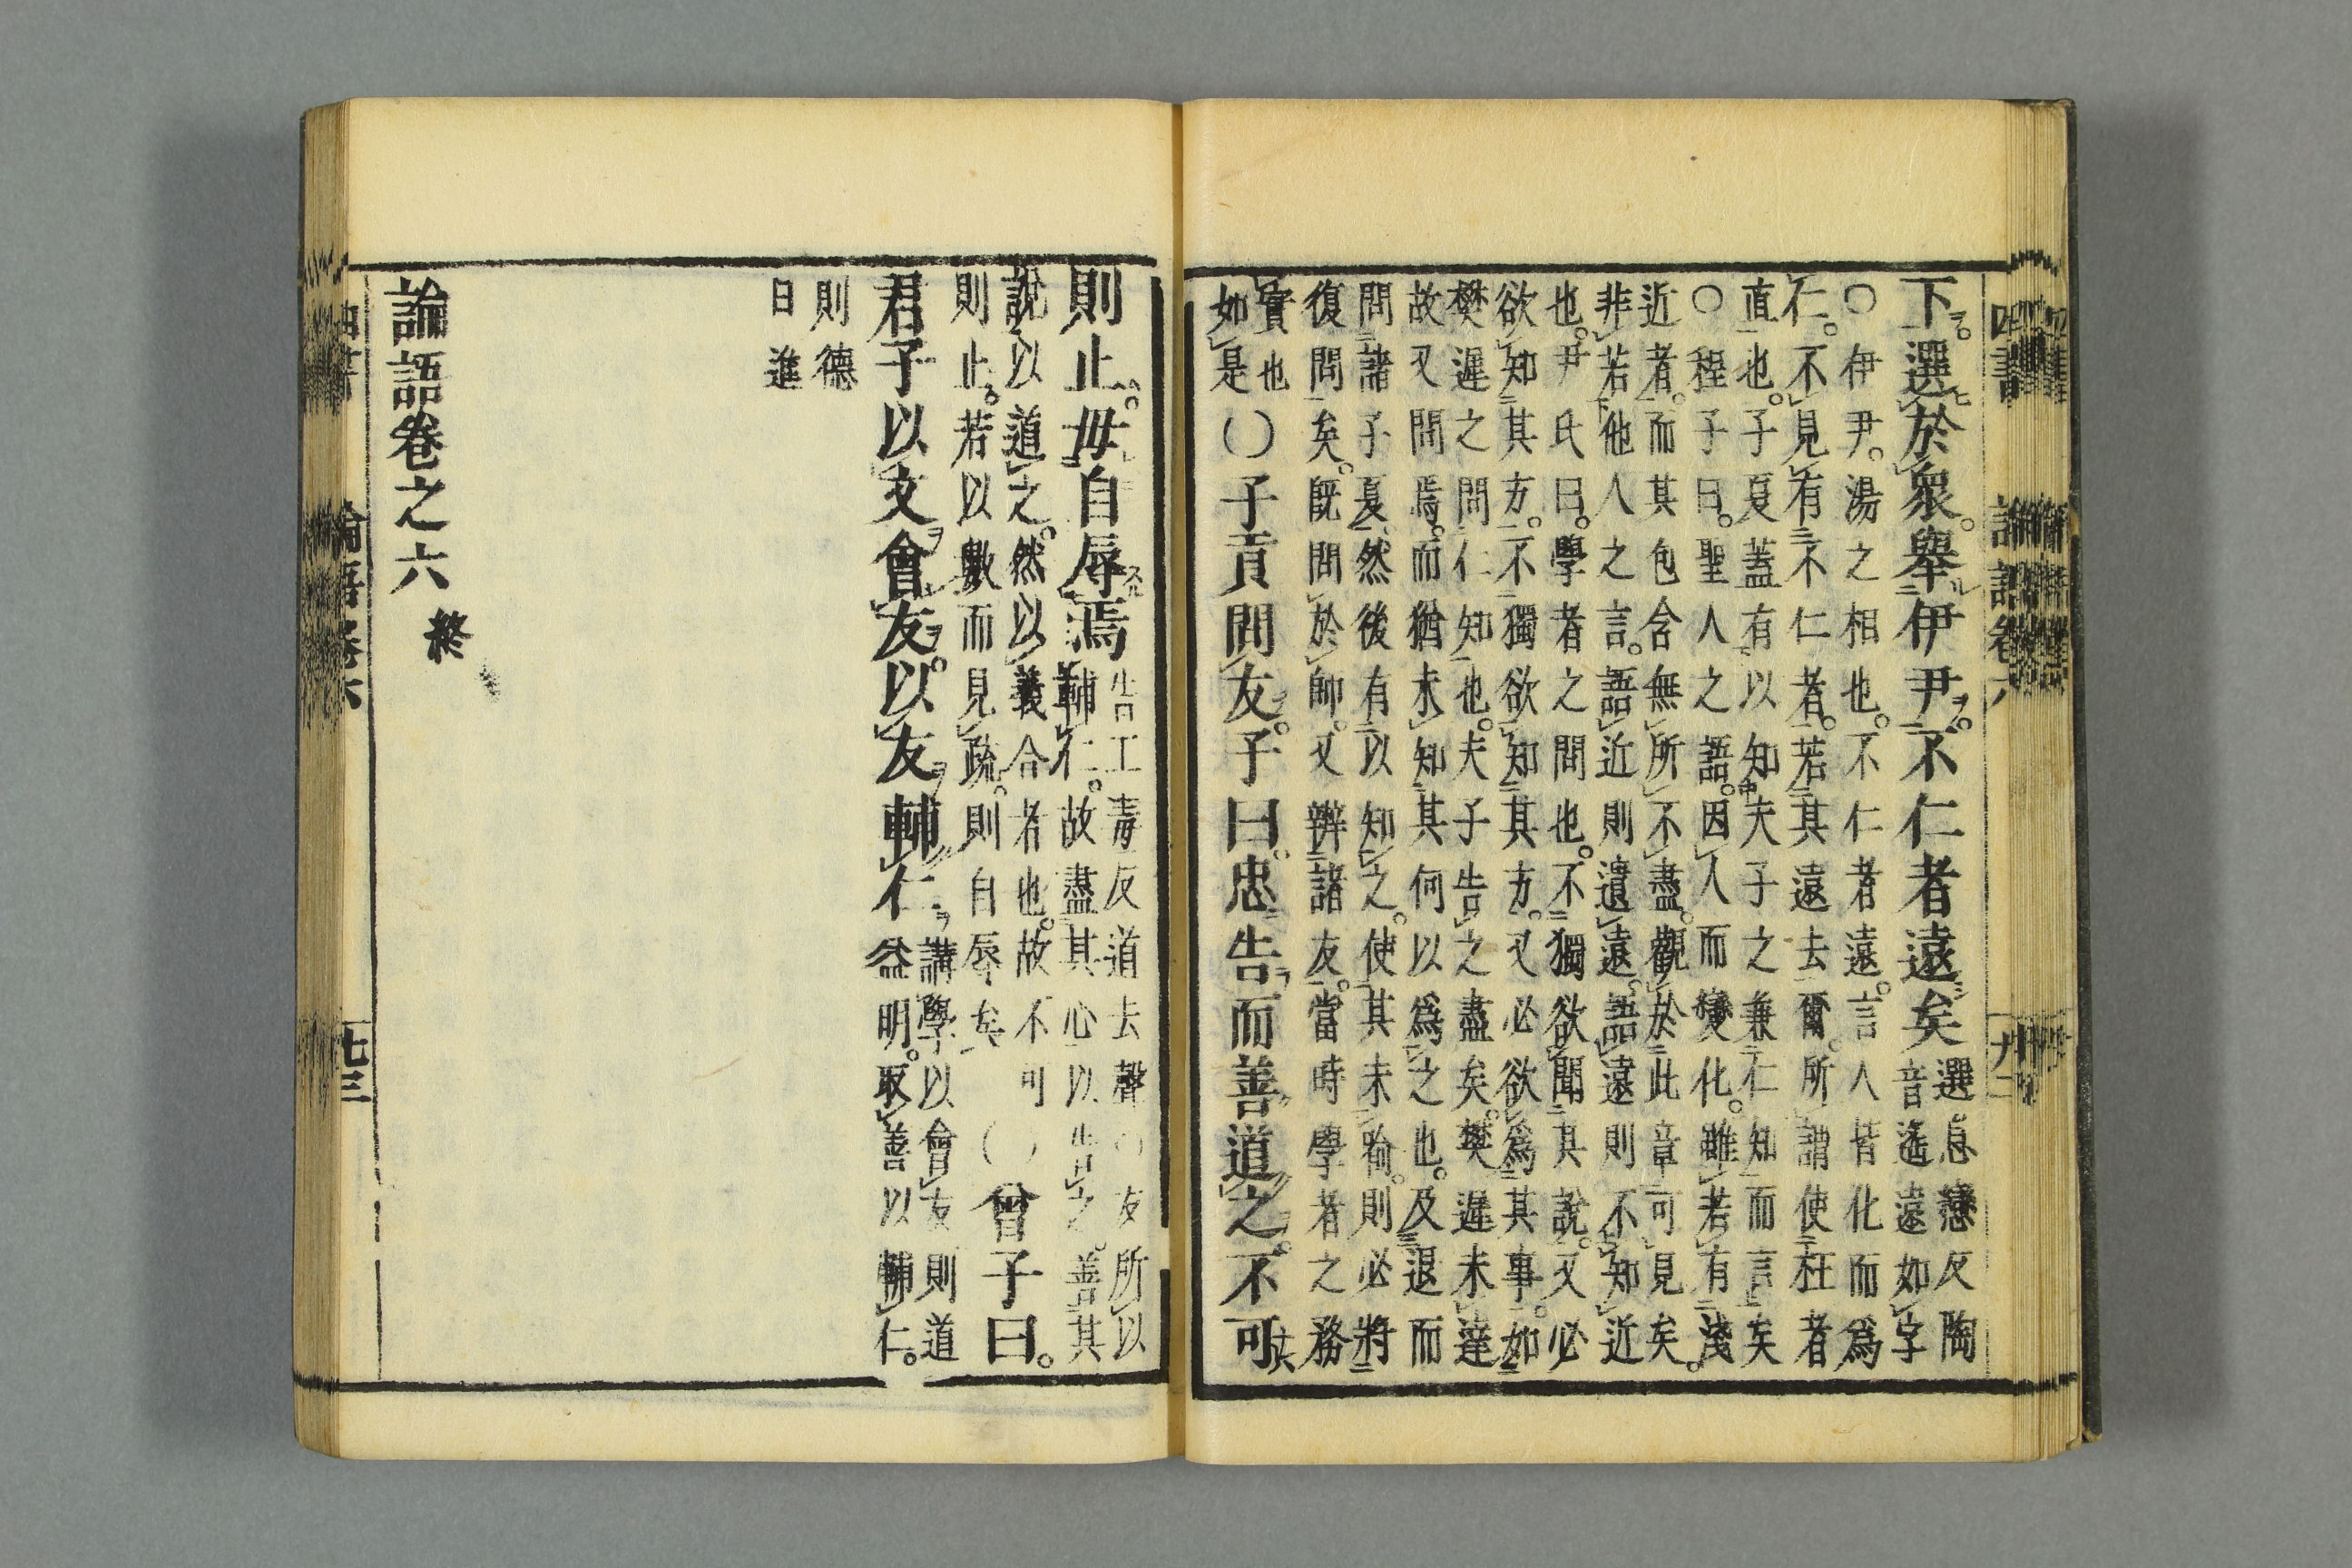 下選於衆舉伊尹不仁者遠矣選息戀反陶
音遙遠如字
○伊尹湯之相也不仁者遠言人皆化而爲
仁不見有不仁者若其遠去爾所謂使枉者
直也子夏蓋有以知夫子之兼仁知而言矣
○程子曰聖人之語因人而變化雖若有淺
近者而其包含無所不盡觀於此章可見矣
非若他人之言語近則遺遠語遠則不知近
也尹氏曰學者之問也不獨欲聞其說又必
欲知其方不獨欲知其方又必欲爲其事如
樊遲之問仁知也夫子告之盡矣樊遲未達
故又問焉而猶未知其何以爲之也及退而
問諸子夏然後有以知之使其未喻則必將
復問矣既問於師又辨諸友當時學者之務
實也
如是○子貢問友子曰忠告而善道之不可
則止毋自辱焉告工毒反道去聲○友所以
輔仁故盡其心以告之善其
說以道之然以義合者也故不可
則止若以數而見疏則自辱矣○曾子曰
君子以文會友以友輔仁講學以會友則道
益明取善以輔仁
則德
日進
論語卷之六 終